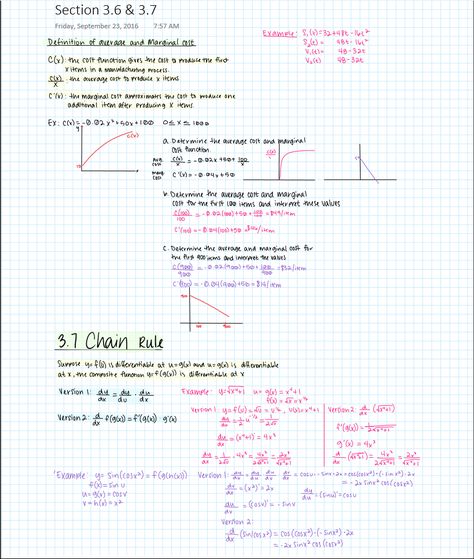 Section 3.6 & 3.7
Friday, September 23, 2016 7:57 AM
Definition of average and Marginal cost
C(x): the cost function gives the cost to produce the first
x items in a manufacturing process.
C(x)/x = the average cost to produce x items
C'(x): the marginal cost approximates the cost to produce one
additional item after producing x items.
Example: S₁(t)=32+48t-16t²
S₂(t) = 48t-16t²
V₁(t) 48-32t
V₂(t) 48-32t
Ex: C(x)=-0.02x²+50x+100 0≤x≤1000
y
C(x)
a. Determine the average cost and marginal
cost function
avg. cost C(x)/x = -0.02x+50+100/x
marg. cost C'(x)=-0.04x+50
b. Determine the average cost and marginal
cost for the first 100 items and interpret these values
C(100)/100 = -0.02(100)+50+100/100 = $49/item
C'(100)=-0.04(100)+50=$46/item
c. Determine the average and marginal cost for
the first 900 items and interpret the values
C(900)/900 = -0.02(900)+50+100/900 = $32/item
C'(900)=-0.04(900)+50=$14/item
50
100 900
3.7 Chain Rule
Suppose y=f(u) is differentiable at u=g(x) and u=g(x) is differentiable
at x, the composite function y=f(g(x)) is differentiable at x
Version 1: dy/dx = dy/du · du/dx
Version 2: d/dx f(g(x))=f'(g(x))·g'(x)
Example: y=√x⁴+1 u=g(x)=x⁴+1
f(x)=√x=x^1/2
Version 1: y=f(u)=√u=u^1/2, u(x)=x⁴+1
dy/du = 1/2 u^-1/2 = 1/2√u
du/dx = (x⁴+1)' = 4x³
dy/dx = 1/2√u · 4x³ = 4x³/2√x⁴+1 = 2x³/√x⁴+1
Version 2: d/dx (√x⁴+1)
f'(g(x))= 1/2√x⁴+1
g'(x)=4x³
d/dx (√x⁴+1) = 4x³/2√x⁴+1 = 2x³/√x⁴+1
Example: y=sin(cosx²)=f(g(h(x))
f(x)=sin u
u=g(x)=cosv
v=h(x)=x²
Version 1: dy/dx = dy/du · du/dv · dv/dx = cosu·-sinv·2x=cos(cosx²)·(-sinx²)·2x
=-2xsinx²cos(cosx²)
dv/dx = (x²)'=2x
dy/du = (sinu)'=cosu
du/dv = (cosv)'=-sinv
Version 2:
d/dx (sin(cosx²)=cos(cosx²)·(-sinx²)·2x
=-2xsinx²cos(cosx²)